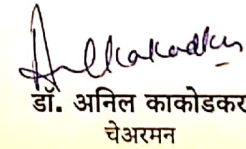 Anilkakodkar
डॉ. अनिल काकोडकर
चेअरमन